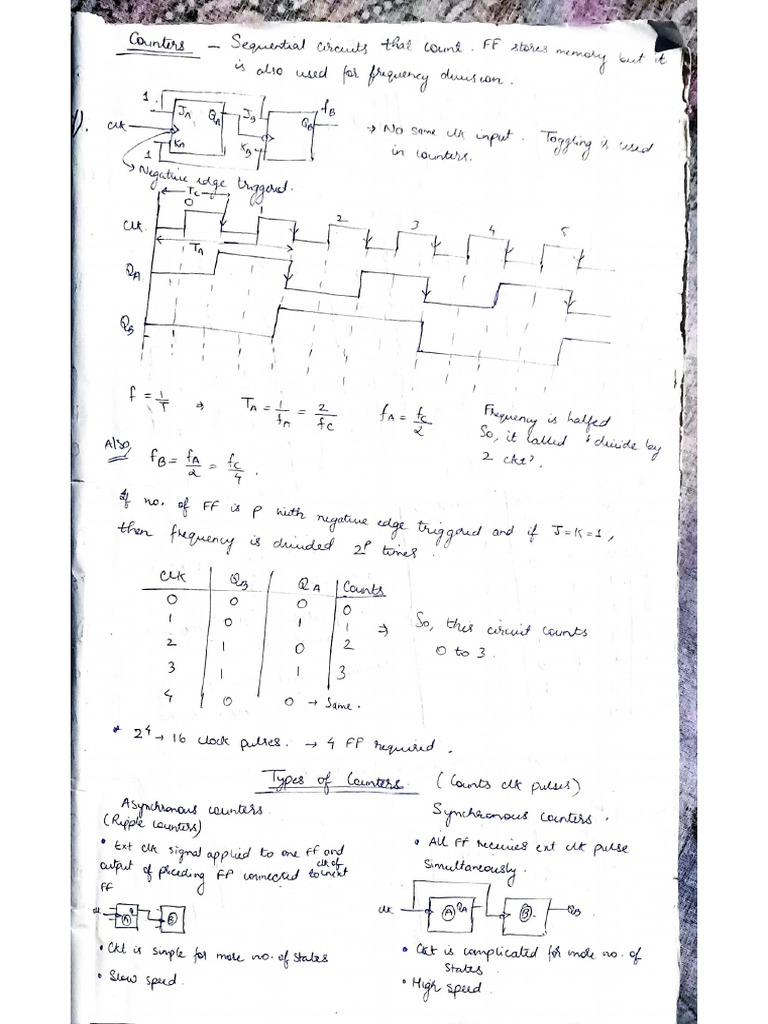 Counters - Sequential circuits that count. FF stores memory but it
is also used for frequency division.
1). 1 JA QA JB QB fB
clk KA KB
1
→ No same clk input. Toggling is used
in counters.
→ Negative edge triggered.
Tc
0 2 3 4 5
Clk
TA
QA
QB
f = 1/T ⇒ TA = 1/fA = 2/fC fA = fC/2
Frequency is halfed
So, it called 'divide by
2 ckt'.
Also, fB = fA/2 = fC/4.
If no. of FF is P with negative edge triggered and if J=K=1,
then frequency is divided 2^P times.
CLK QB QA Counts
0 0 0 0
1 0 1 1
2 1 0 2
3 1 1 3
4 0 0 → Same.
⇒ So, this circuit counts
0 to 3.
* 2^4 → 16 clock pulses. → 4 FF required.
Types of Counters. (Counts clk pulses)
Asynchronous counters
(Ripple counters)
• Ext clk signal applied to one FF and
output of preceding FF connected to clk of next
FF
clk A Q B
• Ckt is simple for more no. of states
• Slow speed.
Synchronous counters.
• All FF receives ext clk pulse
simultaneously.
clk A QA B QB
• Ckt is complicated for more no. of
states.
• High speed.